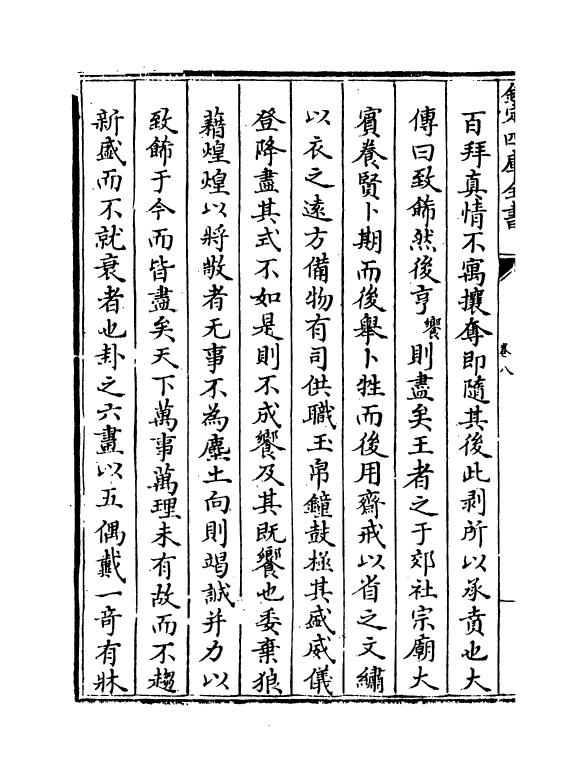 欽定四庫全書
卷八
百拜真情不寓攘奪即隨其後此剥所以承賁也大
傳曰致飾然後亨饗則盡矣王者之于郊社宗廟大
賓養賢卜期而後舉卜牲而後用齋戒以省之文繡
以衣之遠方備物有司供職玉帛鐘鼓極其盛威儀
登降盡其式不如是則不成饗及其既饗也委棄狼
藉煌煌以將敬者无事不為塵土向則竭誠并力以
致飾于今而皆盡矣天下萬事萬理未有故而不趨
新盛而不就衰者也卦之六畫以五偶戴一奇有牀